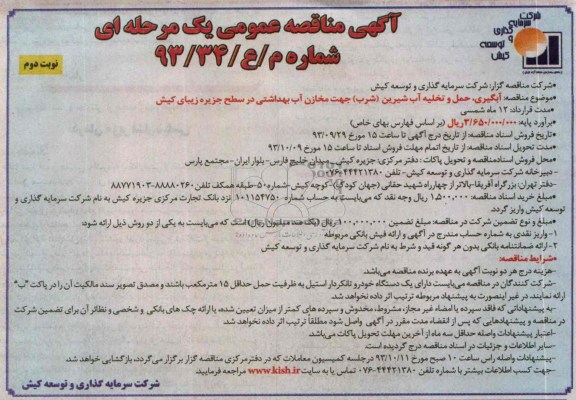 شرکت
سرمایه
گذاری
و
توسعه
کیش
آگهی مناقصه عمومی یک مرحله ای
شماره م/ع/۹۳/۳۴
نوبت دوم
•شرکت مناقصه گزار: شرکت سرمایه گذاری و توسعه کیش
•موضوع مناقصه: آبگیری، حمل و تخلیه آب شیرین (شرب) جهت مخازن آب بهداشتی در سطح جزیره زیبای کیش
•مدت قرارداد: ۱۲ ماه شمسی
•برآورد پایه: ۳/۶۵۰/۰۰۰/۰۰۰ ریال (بر اساس فهارس بهای خاص)
•تاریخ فروش اسناد مناقصه: از تاریخ درج آگهی تا ساعت ۱۵ مورخ ۹۳/۰۹/۲۹
•مدت تحویل اسناد مناقصه: از تاریخ اتمام مهلت فروش اسناد تا ساعت ۱۵ مورخ ۹۳/۱۰/۰۹
•محل فروش اسناد مناقصه و تحویل پاکات: دفتر مرکزی: جزیره کیش- میدان خلیج فارس- بلوار ایران- مجتمع پارس
- دبیرخانه شرکت سرمایه گذاری و توسعه کیش- تلفن ۴۴۴۲۱۳۸۰-۰۷۶
-دفتر تهران: بزرگراه آفریقا-بالاتر از چهارراه شهید حقانی (جهان کودک)- کوچه کیش -شماره ۵۰-طبقه همکف تلفن ۸۸۸۸۰۲۶۰-۸۸۷۷۱۹۰۳
•مبلغ خرید اسناد مناقصه: ۱،۵۰۰،۰۰۰ ریال وجه نقد که می‌بایست به حساب شماره ۱۰۱۱۵۴۷۵۰ نزد بانک تجارت مرکزی جزیره کیش به نام شرکت سرمایه گذاری و توسعه
کیش واریز گردد.
•مبلغ و نوع تضمین شرکت در مناقصه: مبلغ تضمین ۱۰۰،۰۰۰،۰۰۰ ریال (یک صد میلیون ریال) است که می‌بایست به یکی از دو روش ذیل ارائه شود:
۱-واریز نقدی به شماره حساب مندرج در آگهی و ارائه فیش بانکی مربوطه
۲-ارائه ضمانتنامه بانکی بدون هر گونه قید و شرط به نام شرکت سرمایه گذاری و توسعه کیش
•شرایط مناقصه:
-هزینه درج هر دو نوبت آگهی به عهده برنده مناقصه می‌باشد.
-شرکت کنندگان در مناقصه می‌بایست دارای یک دستگاه خودرو تانکردار استیل به ظرفیت حمل حداقل ۱۵ مترمکعب باشند و مصدق تصویر سند مالکیت آن را در پاکت "ب"
ارائه نمایند، در غیر اینصورت به پیشنهاد مربوطه ترتیب اثر داده نخواهد شد.
-به پیشنهاداتی که فاقد سپرده یا امضاء غیر مجاز، مشروط، مخدوش و سپرده های کمتر از میزان تعیین شده، یا ارائه چک های بانکی و شخصی و نظائر آن برای تضمین شرکت
در مناقصه و پیشنهادهایی که پس از انقضاء مدت مقرر در آگهی واصل شود مطلقاً ترتیب اثر داده نخواهد شد.
-اعتبار پیشنهادات واصله حداقل سه ماه از آخرین مهلت تحویل پاکات می‌باشد.
-سایر اطلاعات و جزئیات در اسناد مناقصه درج گردیده است.
-پیشنهادات واصله راس ساعت ۱۰ صبح مورخ ۹۳/۱۰/۱۱ در جلسه کمیسیون معاملات که در دفتر مرکزی مناقصه گزار برگزار می‌گردد، بازگشایی خواهد شد.
-جهت کسب اطلاعات بیشتر با شماره تلفن ۴۴۴۲۱۳۸۰-۰۷۶ تماس یا به سایت www.kish.ir مراجعه فرمایید.
شرکت سرمایه گذاری و توسعه کیش